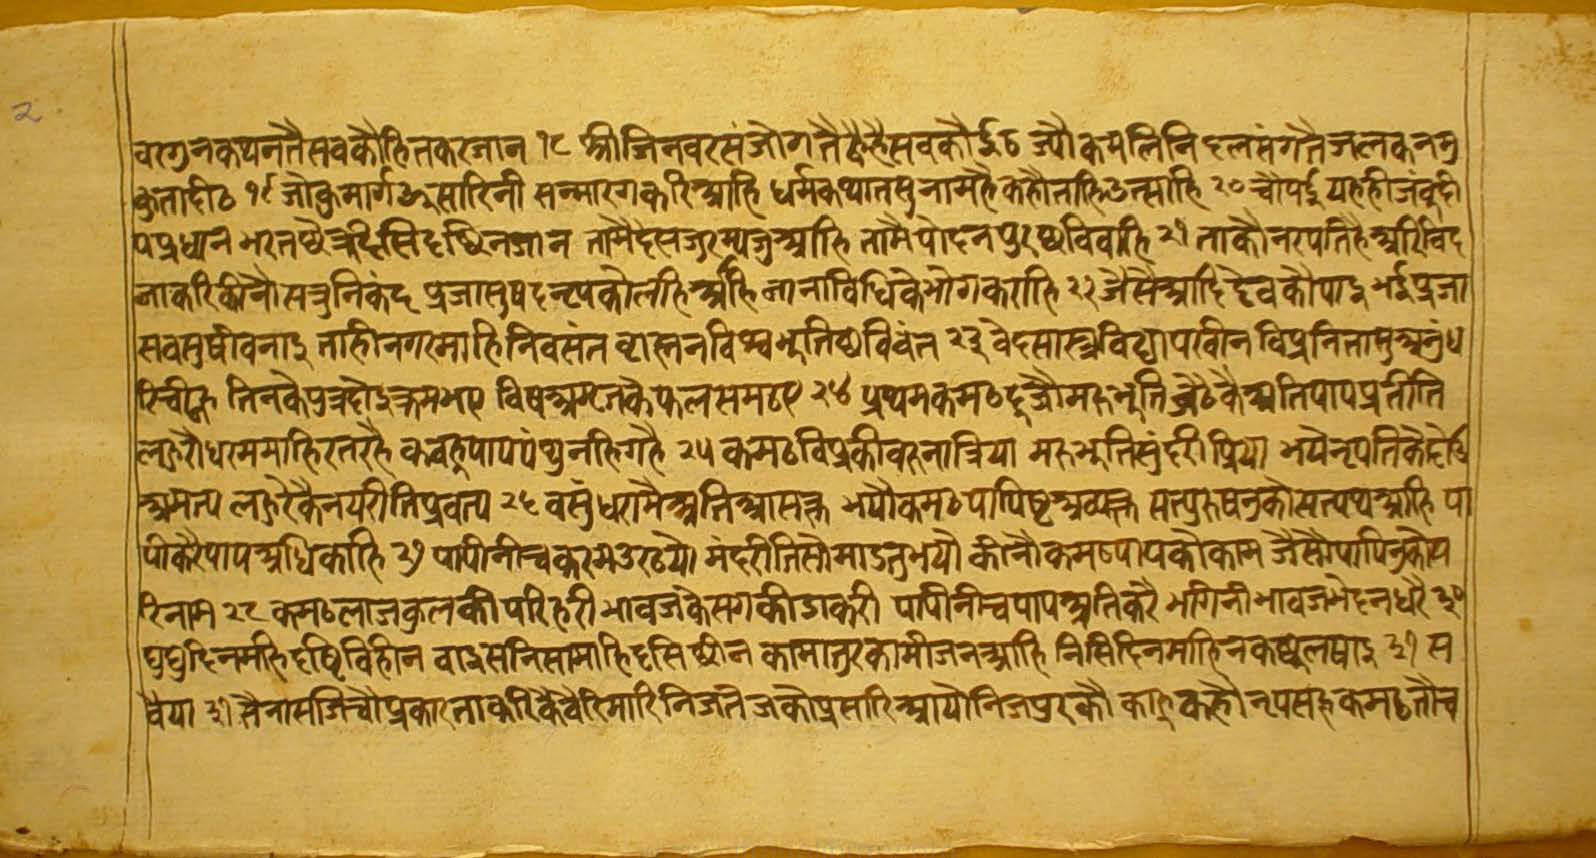 २
वरगुनकथनतैसवकौहितकरजान १८ श्रीजिनवरसंजोगतै है सवकौईठ ज्यौकमलिनिदलसंगतैजलकन
कुताहीठ १९ जोकुमार्ग सारिनी सन्मारगकरिआहि धर्मकथातसुनामहैकहौताहिउत्साहि २० चौपई यहहीजंवूदी
पप्रधान भरतषेत्र दछिनजान तामैदेसजुरम्यजुआहि तामैपोदनपुरछविवाहि २१ ताकौनरपतिहैअरिविंद
जाकरिकीनौसत्रुनिकंद प्रजासुषदनृपकोलहिआहि नानाविधिकेभोगकराहि २२ जैसैआदिदेवकौपाइ भईप्रजा
सवसुषीवनाइ ताहीनगरमाहिनिवसंत व्राह्मनविस्वभूतिछविवंत २३ वेदसास्त्रविद्यापरवीन विप्रनितासुअनुंध
रिचीन्ह तिनकैपुत्रदोइक्रमभए विषअमृतकेफलसमठए २४ प्रथमकमठदूजौमरुभूति जेठैकैअतिपापप्रतीति
लहुरौधरममाहिरतरहै कवहूपापपंथुनहिगहै २५ कमठविप्रकीवरुनात्रिया मरुभूतिसुंदरीप्रिया भयेनृपतिके
अमत्य लहुरेकैनयरीतिप्रवत्य २६ वसुंधरामैअतिआसक्त भयौकमठपापिष्टअव्यक्त सत्पुरुषनुकोसत्पथआहि पा
पीकरैपापअधिकाहि २७ पापीनीचकरमउरठयो मंदरीतिसोमाडतुभयौ कीनौकमठपापकौकाम जैसौपापिनुकोप
रिनाम २८ कमठलाजकुलकीपरिहरी भावजकैसगक्रीडाकरी पापीनीचपापअतिकरै भगिनीभावजभेदनधरै ३०
घुघुदिनमहिदृष्टिविहीन वाइसनिसामाहिदृसिछीन कामातुरकामीजनआहि निसिदिनमाहिनकछूलषाइ ३१ स
वैया ३१ सैनासजिच्यौप्रकारताकरिकैवैरिमारिनिजतेजकौप्रसारिआयौनिजपुरकौ काहूकहौनृपसहकमठतौच